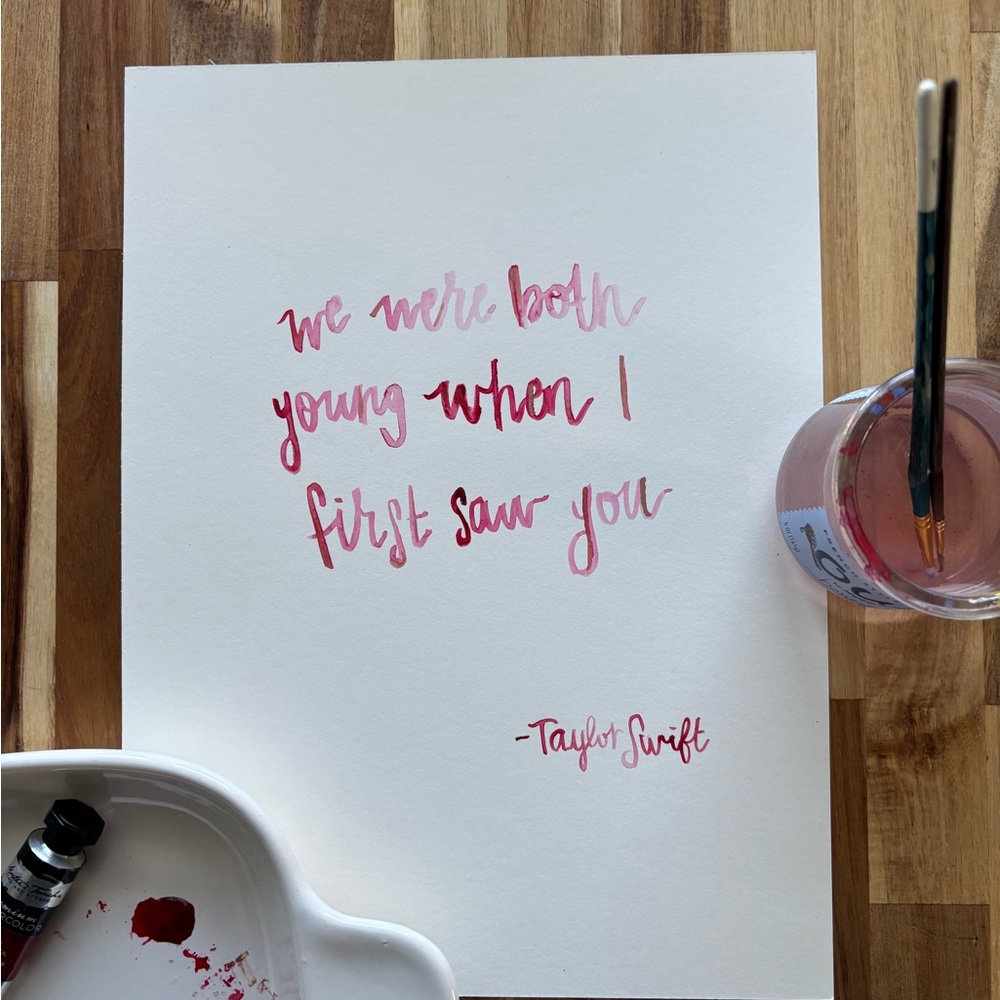 we were both
young when I
first saw you
-Taylor Swift